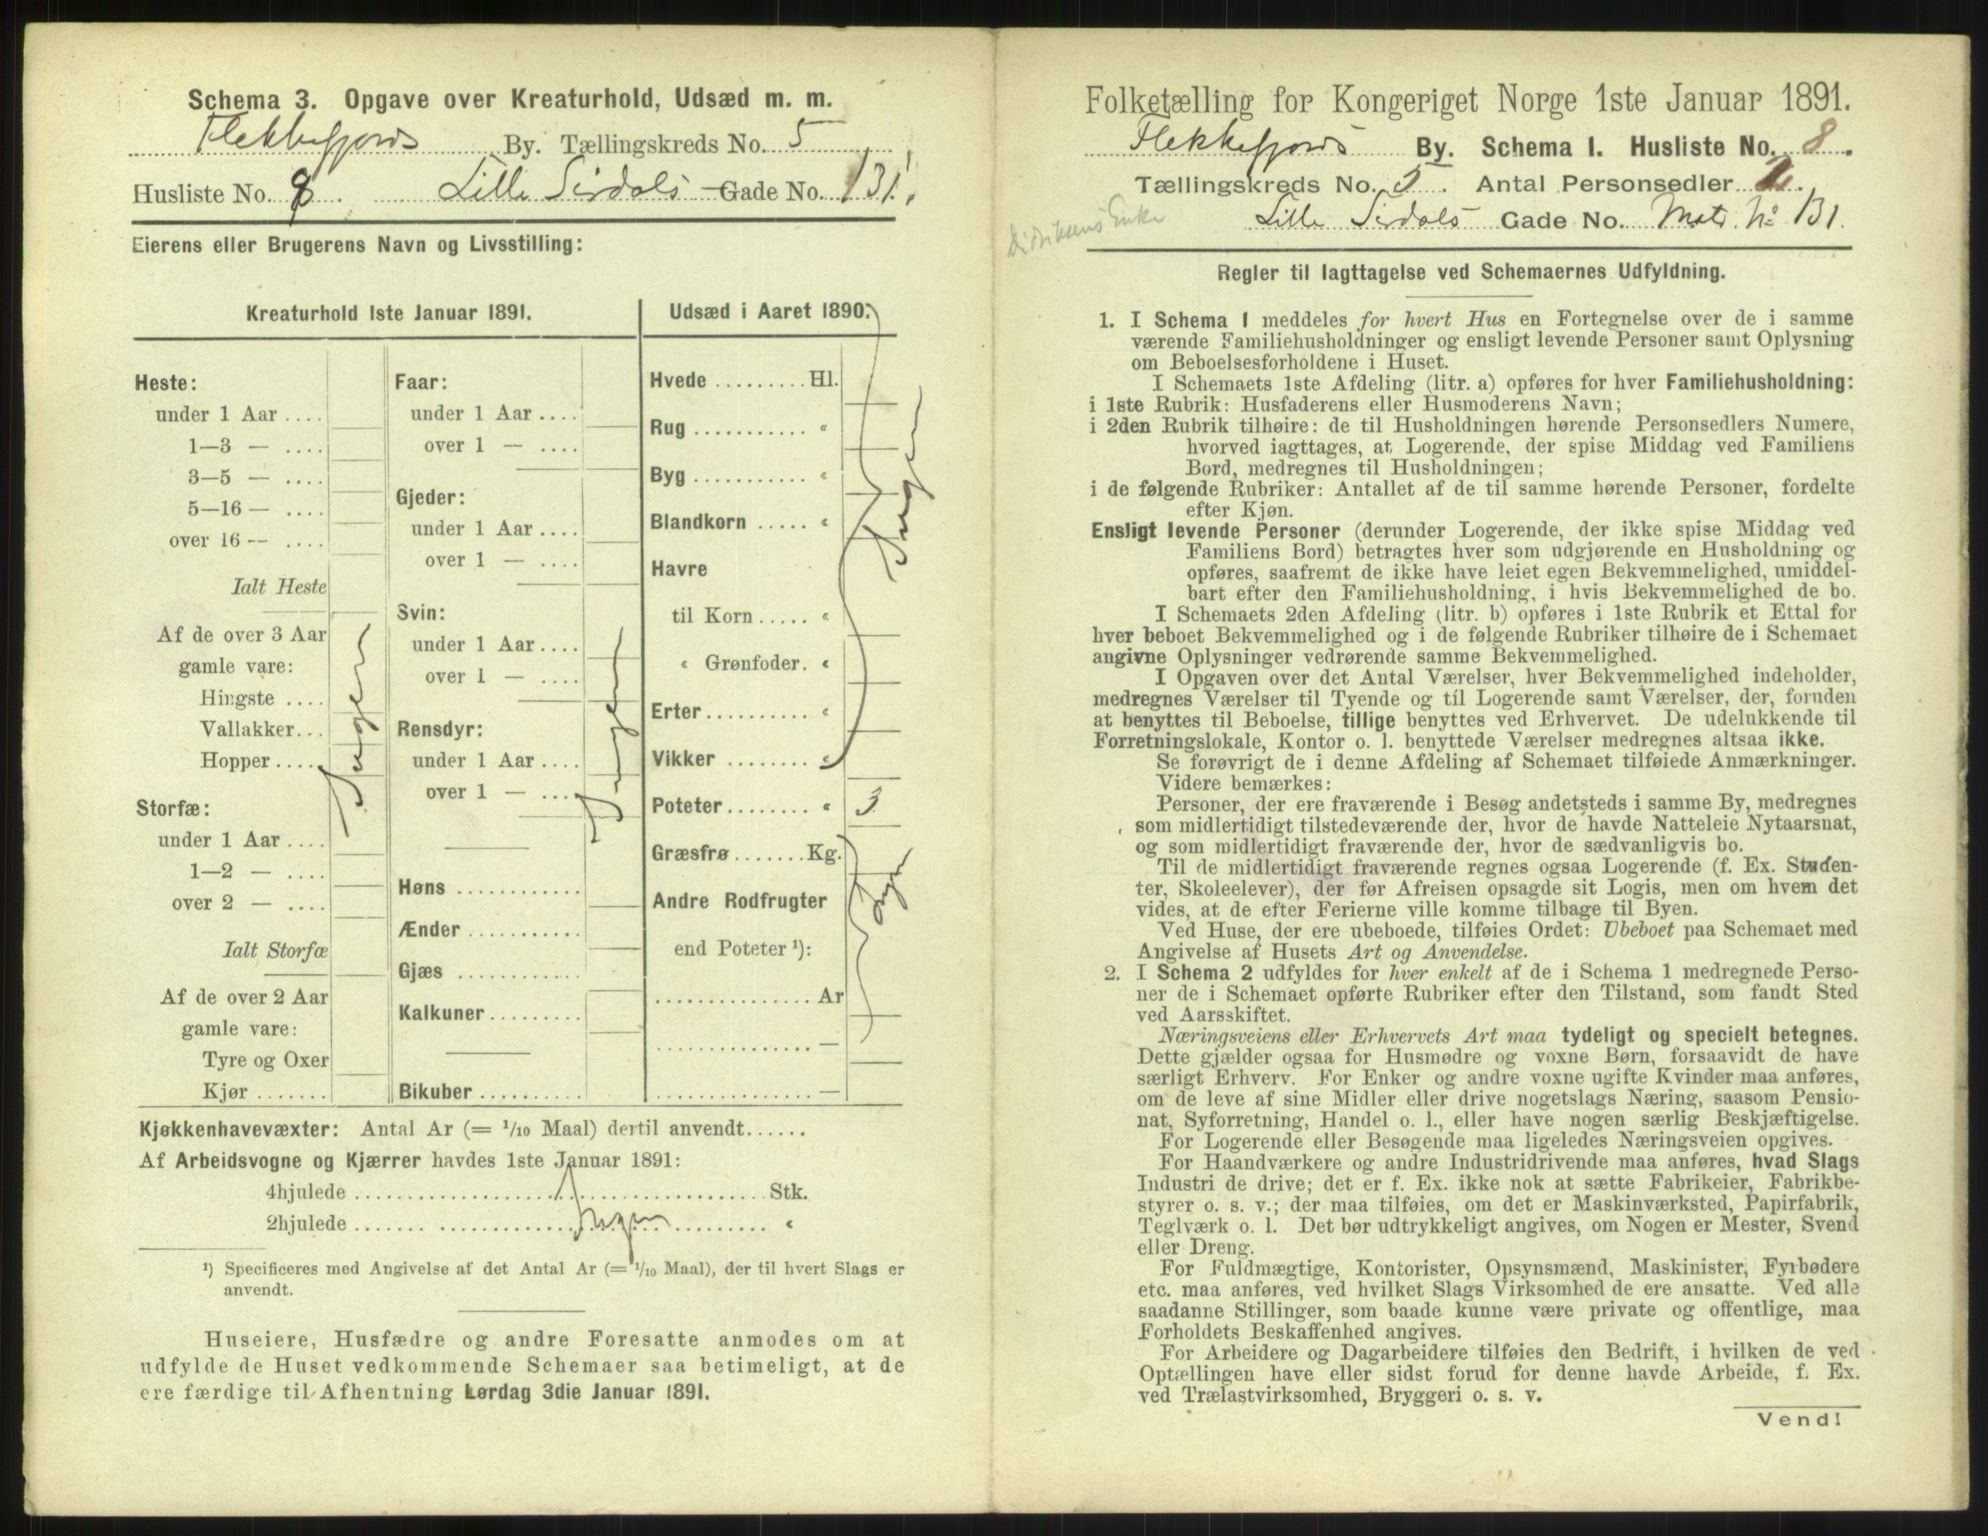 Schema 3. Opgave over Kreaturhold, Udsæd m. m.
Flekkefjords By. Tællingskreds No. 5
Husliste No. 8. Lille Sirdals Gade No. 131.
Eierens eller Brugerens Navn og Livsstilling:
Kreaturhold 1ste Januar 1891.
Heste:
under 1 Aar ....
1—3 — ....
3—5 — ....
5—16 — ....
over 16 — ....
Ialt Heste
Af de over 3 Aar
gamle vare:
Hingste ....
Vallakker...
Hopper .....
Ingen
Storfæ:
under 1 Aar ....
1—2 — ....
over 2 — ....
Ialt Storfæ
Af de over 2 Aar
gamle vare:
Tyre og Oxer
Kjør .......
Faar:
under 1 Aar ....
over 1 — ....
Gjeder:
under 1 Aar ....
over 1 — ....
Svin:
under 1 Aar ....
over 1 — ....
Rensdyr:
under 1 Aar ....
over 1 — ....
Ingen
Høns ...........
Ænder ...........
Gjæs ...........
Kalkuner .........
Bikuber ..........
Udsæd i Aaret 1890.
Hvede ......... Hl.
Rug ........... "
Byg ........... "
Blandkorn ..... "
Havre
til Korn ..... "
" Grønfoder. "
Erter.......... "
Vikker ........ "
Ingen
Poteter........ " 3
Græsfrø....... Kg.
Andre Rodfrugter
end Poteter ¹):
............... Ar
............... —
............... —
Ingen
Kjøkkenhavevæxter: Antal Ar (= 1/10 Maal) dertil anvendt......
Af Arbeidsvogne og Kjærrer havdes 1ste Januar 1891:
4hjulede .................................. Stk.
2hjulede .................................. "
Ingen
¹) Specificeres med Angivelse af det Antal Ar (= 1/10 Maal), der til hvert Slags er
anvendt.
Huseiere, Husfædre og andre Foresatte anmodes om at
udfylde de Huset vedkommende Schemaer saa betimeligt, at de
ere færdige til Afhentning Lørdag 3die Januar 1891.
Folketælling for Kongeriget Norge 1ste Januar 1891.
Flekkefjords By. Schema I. Husliste No. 8.
Tællingskreds No. 5. Antal Personsedler 2.
Lille Sirdals Gade No. Matr. No 131.
Didriksens Enke
Regler til Iagttagelse ved Schemaernes Udfyldning.
1. I Schema 1 meddeles for hvert Hus en Fortegnelse over de i samme
værende Familiehusholdninger og ensligt levende Personer samt Oplysning
om Beboelsesforholdene i Huset.
I Schemaets 1ste Afdeling (litr. a) opføres for hver Familiehusholdning:
i 1ste Rubrik: Husfaderens eller Husmoderens Navn;
i 2den Rubrik tilhøire: de til Husholdningen hørende Personsedlers Numere,
hvorved iagttages, at Logerende, der spise Middag ved Familiens
Bord, medregnes til Husholdningen;
i de følgende Rubriker: Antallet af de til samme hørende Personer, fordelte
efter Kjøn.
Ensligt levende Personer (derunder Logerende, der ikke spise Middag ved
Familiens Bord) betragtes hver som udgjørende en Husholdning og
opføres, saafremt de ikke have leiet egen Bekvemmelighed, umiddel-
bart efter den Familiehusholdning, i hvis Bekvemmelighed de bo.
I Schemaets 2den Afdeling (litr. b) opføres i 1ste Rubrik et Ettal for
hver beboet Bekvemmelighed og i de følgende Rubriker tilhøire de i Schemaet
angivne Oplysninger vedrørende samme Bekvemmelighed.
I Opgaven over det Antal Værelser, hver Bekvemmelighed indeholder,
medregnes Værelser til Tyende og til Logerende samt Værelser, der, foruden
at benyttes til Beboelse, tillige benyttes ved Erhvervet. De udelukkende til
Forretningslokale, Kontor o. l. benyttede Værelser medregnes altsaa ikke.
Se forøvrigt de i denne Afdeling af Schemaet tilføiede Anmærkninger.
Videre bemærkes:
Personer, der ere fraværende i Besøg andetsteds i samme By, medregnes
som midlertidigt tilstedeværende der, hvor de havde Natteleie Nytaarsnat,
og som midlertidigt fraværende der, hvor de sædvanligvis bo.
Til de midlertidigt fraværende regnes ogsaa Logerende (f. Ex. Studen-
ter, Skoleelever), der før Afreisen opsagde sit Logis, men om hvem det
vides, at de efter Ferierne ville komme tilbage til Byen.
Ved Huse, der ere ubeboede, tilføies Ordet: Ubeboet paa Schemaet med
Angivelse af Husets Art og Anvendelse.
2. I Schema 2 udfyldes for hver enkelt af de i Schema 1 medregnede Perso-
ner de i Schemaet opførte Rubriker efter den Tilstand, som fandt Sted
ved Aarsskiftet.
Næringsveiens eller Erhvervets Art maa tydeligt og specielt betegnes.
Dette gjælder ogsaa for Husmødre og voxne Børn, forsaavidt de have
særligt Erhverv. For Enker og andre voxne ugifte Kvinder maa anføres,
om de leve af sine Midler eller drive nogetslags Næring, saasom Pensio-
nat, Syforretning, Handel o. l., eller have nogen særlig Beskjæftigelse.
For Logerende eller Besøgende maa ligeledes Næringsveien opgives.
For Haandværkere og andre Industridrivende maa anføres, hvad Slags
Industri de drive; det er f. Ex. ikke nok at sætte Fabrikeier, Fabrikbe-
styrer o. s. v.; der maa tilføies, om det er Maskinværksted, Papirfabrik,
Teglværk o. l. Det bør udtrykkeligt angives, om Nogen er Mester, Svend
eller Dreng.
For Fuldmægtige, Kontorister, Opsynsmænd, Maskinister, Fyrbødere
etc. maa anføres, ved hvilket Slags Virksomhed de ere ansatte. Ved alle
saadanne Stillinger, som baade kunne være private og offentlige, maa
Forholdets Beskaffenhed angives.
For Arbeidere og Dagarbeidere tilføies den Bedrift, i hvilken de ved
Optællingen have eller sidst forud for denne havde Arbeide, f. Ex.
ved Trælastvirksomhed, Bryggeri o. s. v.
Vend!